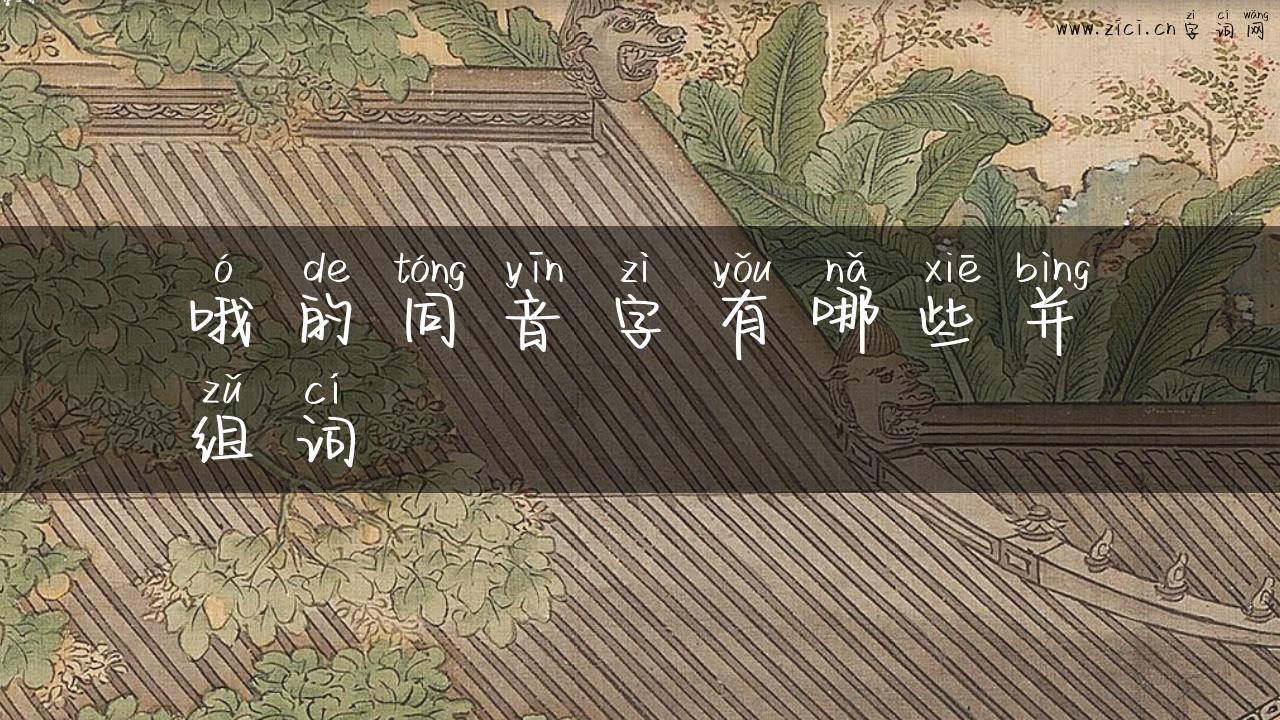 zì cí wǎng
www.zici.cn 字 词 网
ó de tóng yīn zì yǒu nǎ xiē bìng
哦 的 同 音 字 有 哪 些 并
zǔ cí
组 词